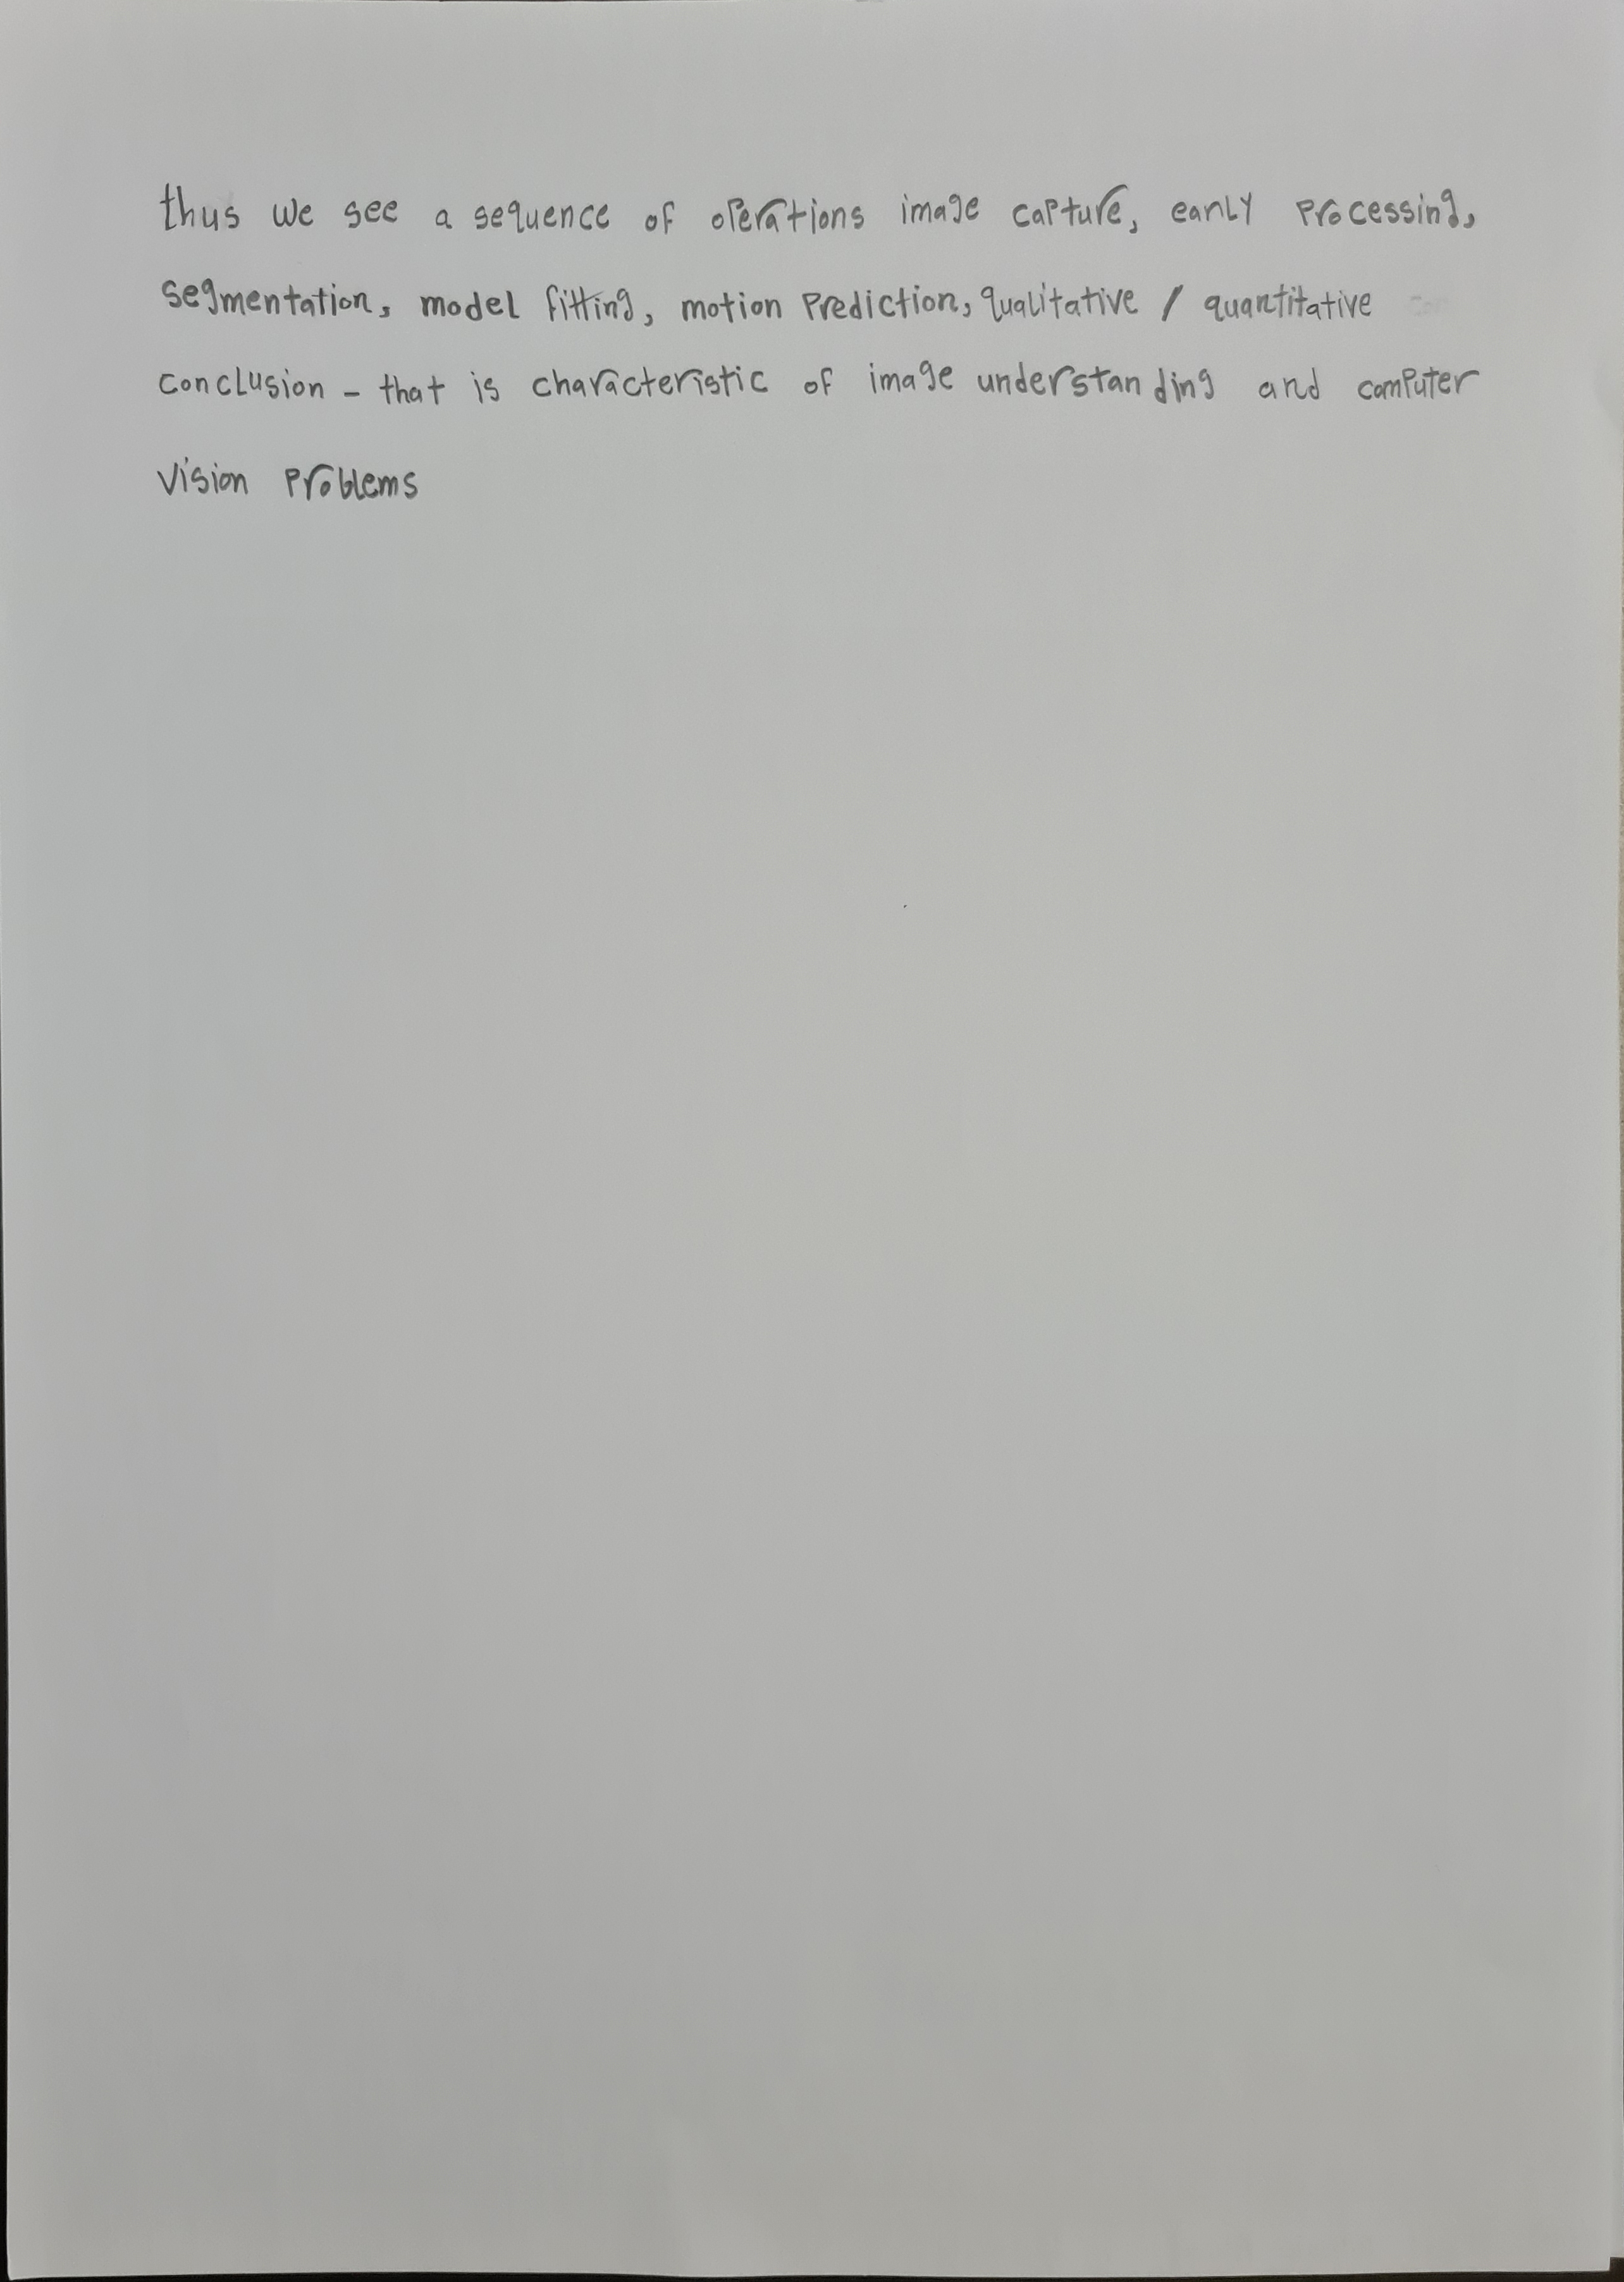 thus we see a sequence of operations image capture, early processing,
segmentation, model fitting, motion prediction, qualitative / quantitative
conclusion - that is characteristic of image understanding and computer
vision problems